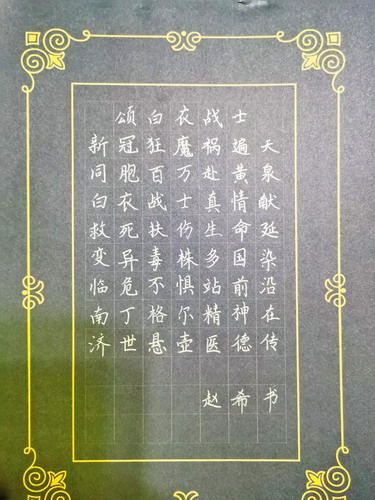 颂白衣战士
新冠狂魔祸遍天
同胞百万赴黄泉
白衣战士真情献
救死扶伤生命延
变异毒株多国染
临危不惧站前沿
南丁格尔精神在
济世悬壶医德传
赵希书